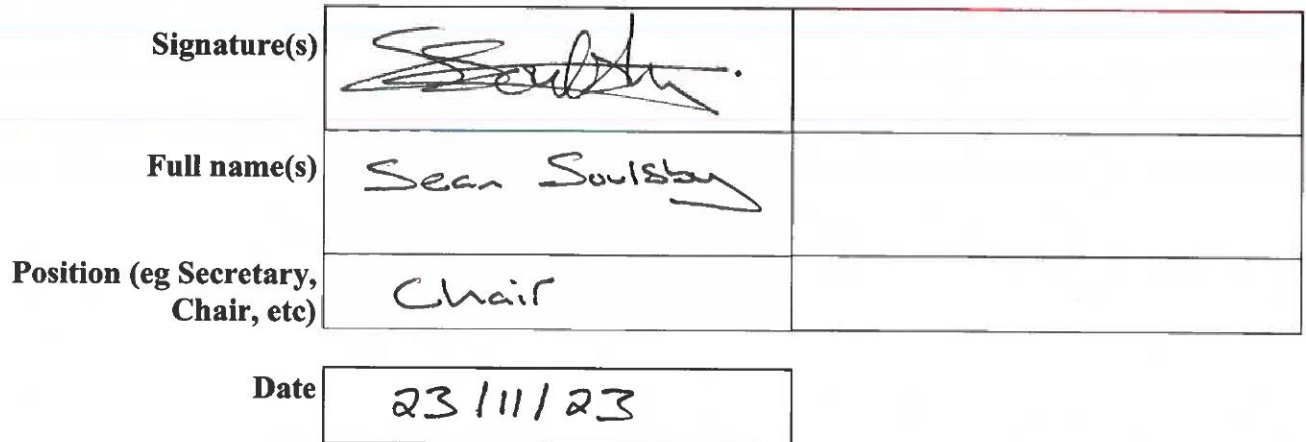 Signature(s)
Full name(s) Sean Soulsby
Position (eg Secretary,
Chair, etc) Chair
Date 23/11/23